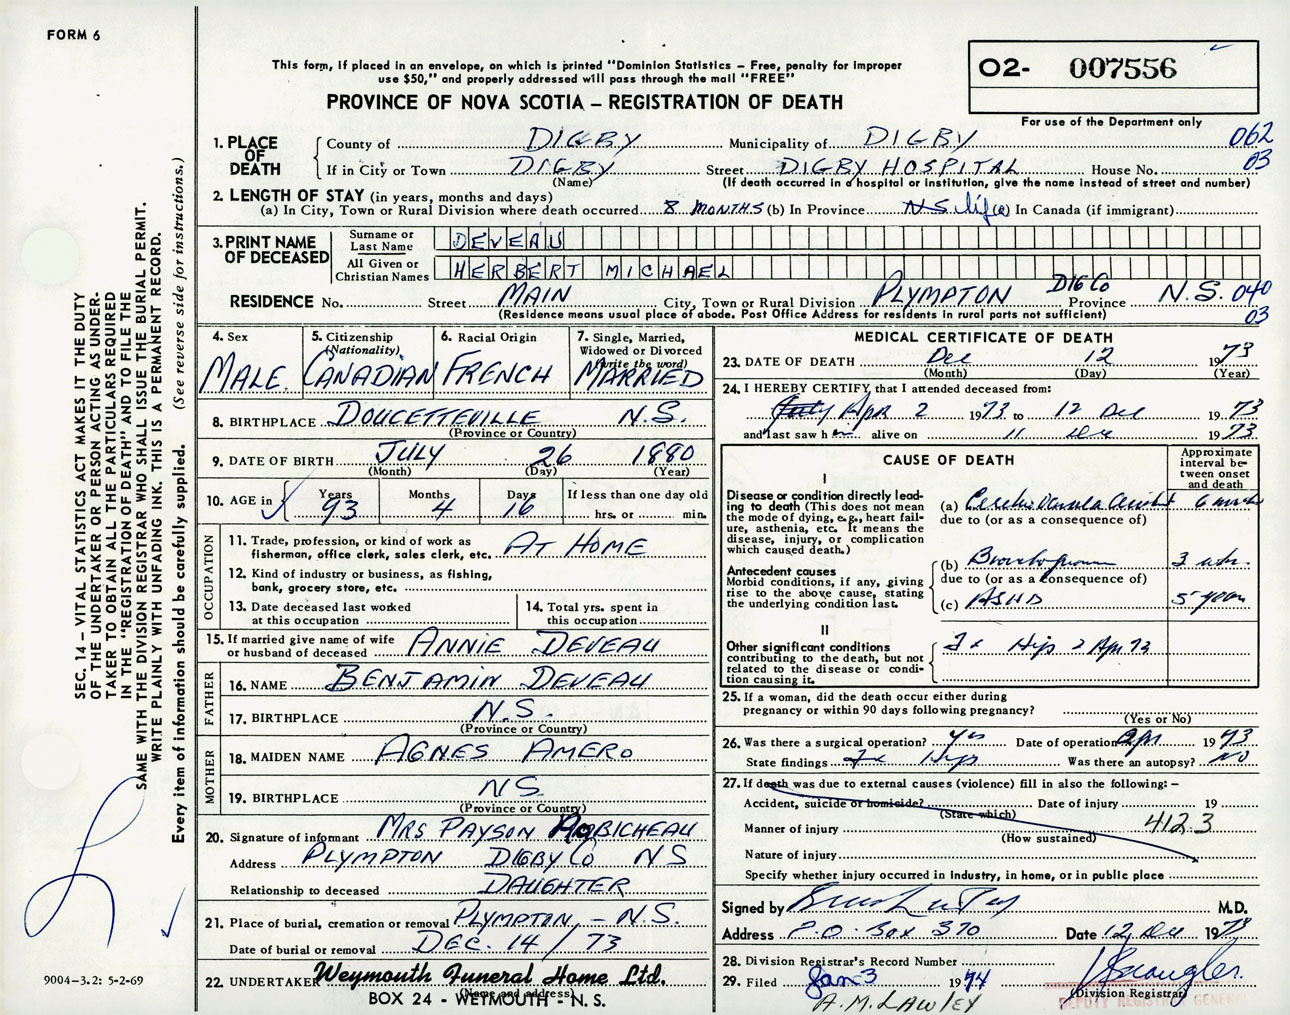 FORM 6
This form, if placed in an envelope, on which is printed "Dominion Statistics – Free, penalty for improper
use $50," and properly addressed will pass through the mail "FREE"
PROVINCE OF NOVA SCOTIA – REGISTRATION OF DEATH
O2- 007556
For use of the Department only
062
03
1. PLACE OF DEATH
County of DIGBY Municipality of DIGBY
If in City or Town DIGBY Street DIGBY HOSPITAL House No.
(Name) (If death occurred in a hospital or institution, give the name instead of street and number)
2. LENGTH OF STAY (in years, months and days)
(a) In City, Town or Rural Division where death occurred 8 MONTHS (b) In Province N.S. life (c) In Canada (if immigrant)
3. PRINT NAME OF DECEASED
Surname or Last Name DEVEAU
All Given or Christian Names HERBERT MICHAEL
RESIDENCE No. Street MAIN City, Town or Rural Division PLYMPTON DIG CO Province N.S. 040
03
(Residence means usual place of abode. Post Office Address for residents in rural parts not sufficient)
4. Sex
MALE
5. Citizenship
(Nationality)
CANADIAN
6. Racial Origin
FRENCH
7. Single, Married,
Widowed or Divorced
(write the word)
MARRIED
8. BIRTHPLACE DOUCETTEVILLE N.S.
(Province or Country)
9. DATE OF BIRTH JULY 26 1880
(Month) (Day) (Year)
10. AGE in
Years 93
Months 4
Days 16
If less than one day old
hrs. or min.
OCCUPATION
11. Trade, profession, or kind of work as
fisherman, office clerk, sales clerk, etc. AT HOME
12. Kind of industry or business, as fishing,
bank, grocery store, etc.
13. Date deceased last worked
at this occupation
14. Total yrs. spent in
this occupation
15. If married give name of wife
or husband of deceased ANNIE DEVEAU
FATHER
16. NAME BENJAMIN DEVEAU
17. BIRTHPLACE N.S.
(Province or Country)
MOTHER
18. MAIDEN NAME AGNES AMERO
19. BIRTHPLACE N.S.
(Province or Country)
20. Signature of informant MRS PAYSON ROBICHEAU
Address PLYMPTON DIGBY CO NS
Relationship to deceased DAUGHTER
21. Place of burial, cremation or removal PLYMPTON, – N.S.
Date of burial or removal DEC. 14/73
22. UNDERTAKER Weymouth Funeral Home Ltd.
(Name and address)
BOX 24 - WEYMOUTH - N. S.
MEDICAL CERTIFICATE OF DEATH
23. DATE OF DEATH Dec 12 1973
(Month) (Day) (Year)
24. I HEREBY CERTIFY, that I attended deceased from:
Apr 2 1973 to 12 Dec 1973
and last saw him alive on 11 Dec 1973
CAUSE OF DEATH
Approximate
interval be-
tween onset
and death
I
Disease or condition directly lead-
ing to death (This does not mean
the mode of dying, e.g., heart fail-
ure, asthenia, etc. It means the
disease, injury, or complication
which caused death.)
(a) 6
due to (or as a consequence of)
Antecedent causes
Morbid conditions, if any, giving
rise to the above cause, stating
the underlying condition last.
(b) 3
due to (or as a consequence of)
(c) ASHD 5 years
II
Other significant conditions
contributing to the death, but not
related to the disease or condi-
tion causing it.
Fx Hip 2 Apr 73
25. If a woman, did the death occur either during
pregnancy or within 90 days following pregnancy?
(Yes or No)
26. Was there a surgical operation? yes Date of operation Apr 1973
State findings Fx Hip Was there an autopsy? NO
27. If death was due to external causes (violence) fill in also the following: –
Accident, suicide or homicide? Date of injury 19
(State which)
Manner of injury 412.3
(How sustained)
Nature of injury
Specify whether injury occurred in industry, in home, or in public place
Signed by M.D.
Address P.O. Box 370 Date 12 Dec 1973
28. Division Registrar's Record Number
29. Filed Jan 3 1974
(Division Registrar)
A.M. LAWLEY
DEPUTY REGISTRAR GENERAL
SEC. 14 – VITAL STATISTICS ACT MAKES IT THE DUTY
OF THE UNDERTAKER OR PERSON ACTING AS UNDER-
TAKER TO OBTAIN ALL THE PARTICULARS REQUIRED
IN THE "REGISTRATION OF DEATH" AND TO FILE THE
SAME WITH THE DIVISION REGISTRAR WHO SHALL ISSUE THE BURIAL PERMIT.
WRITE PLAINLY WITH UNFADING INK. THIS IS A PERMANENT RECORD.
Every item of information should be carefully supplied. (See reverse side for instructions.)
9004–3.2: 5-2-69